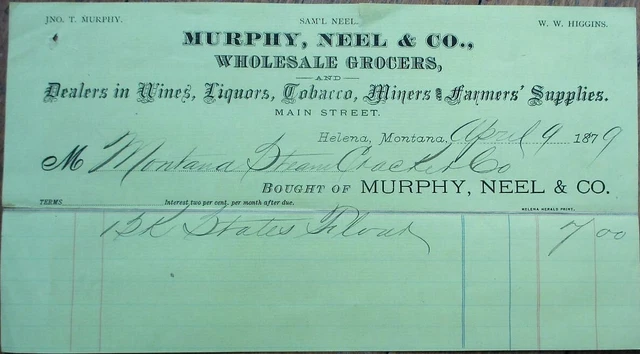 JNO. T. MURPHY. SAM'L NEEL. W. W. HIGGINS.
MURPHY, NEEL & CO.,
WHOLESALE GROCERS,
AND
Dealers in Wines, Liquors, Tobacco, Miners & Farmers' Supplies.
MAIN STREET.
Helena, Montana, April 9 1879
M Montana Steam Cracker Co
BOUGHT OF MURPHY, NEEL & CO.
TERMS Interest two per cent. per month after due.
HELENA HERALD PRINT.
1 Bk States Flour 7 00